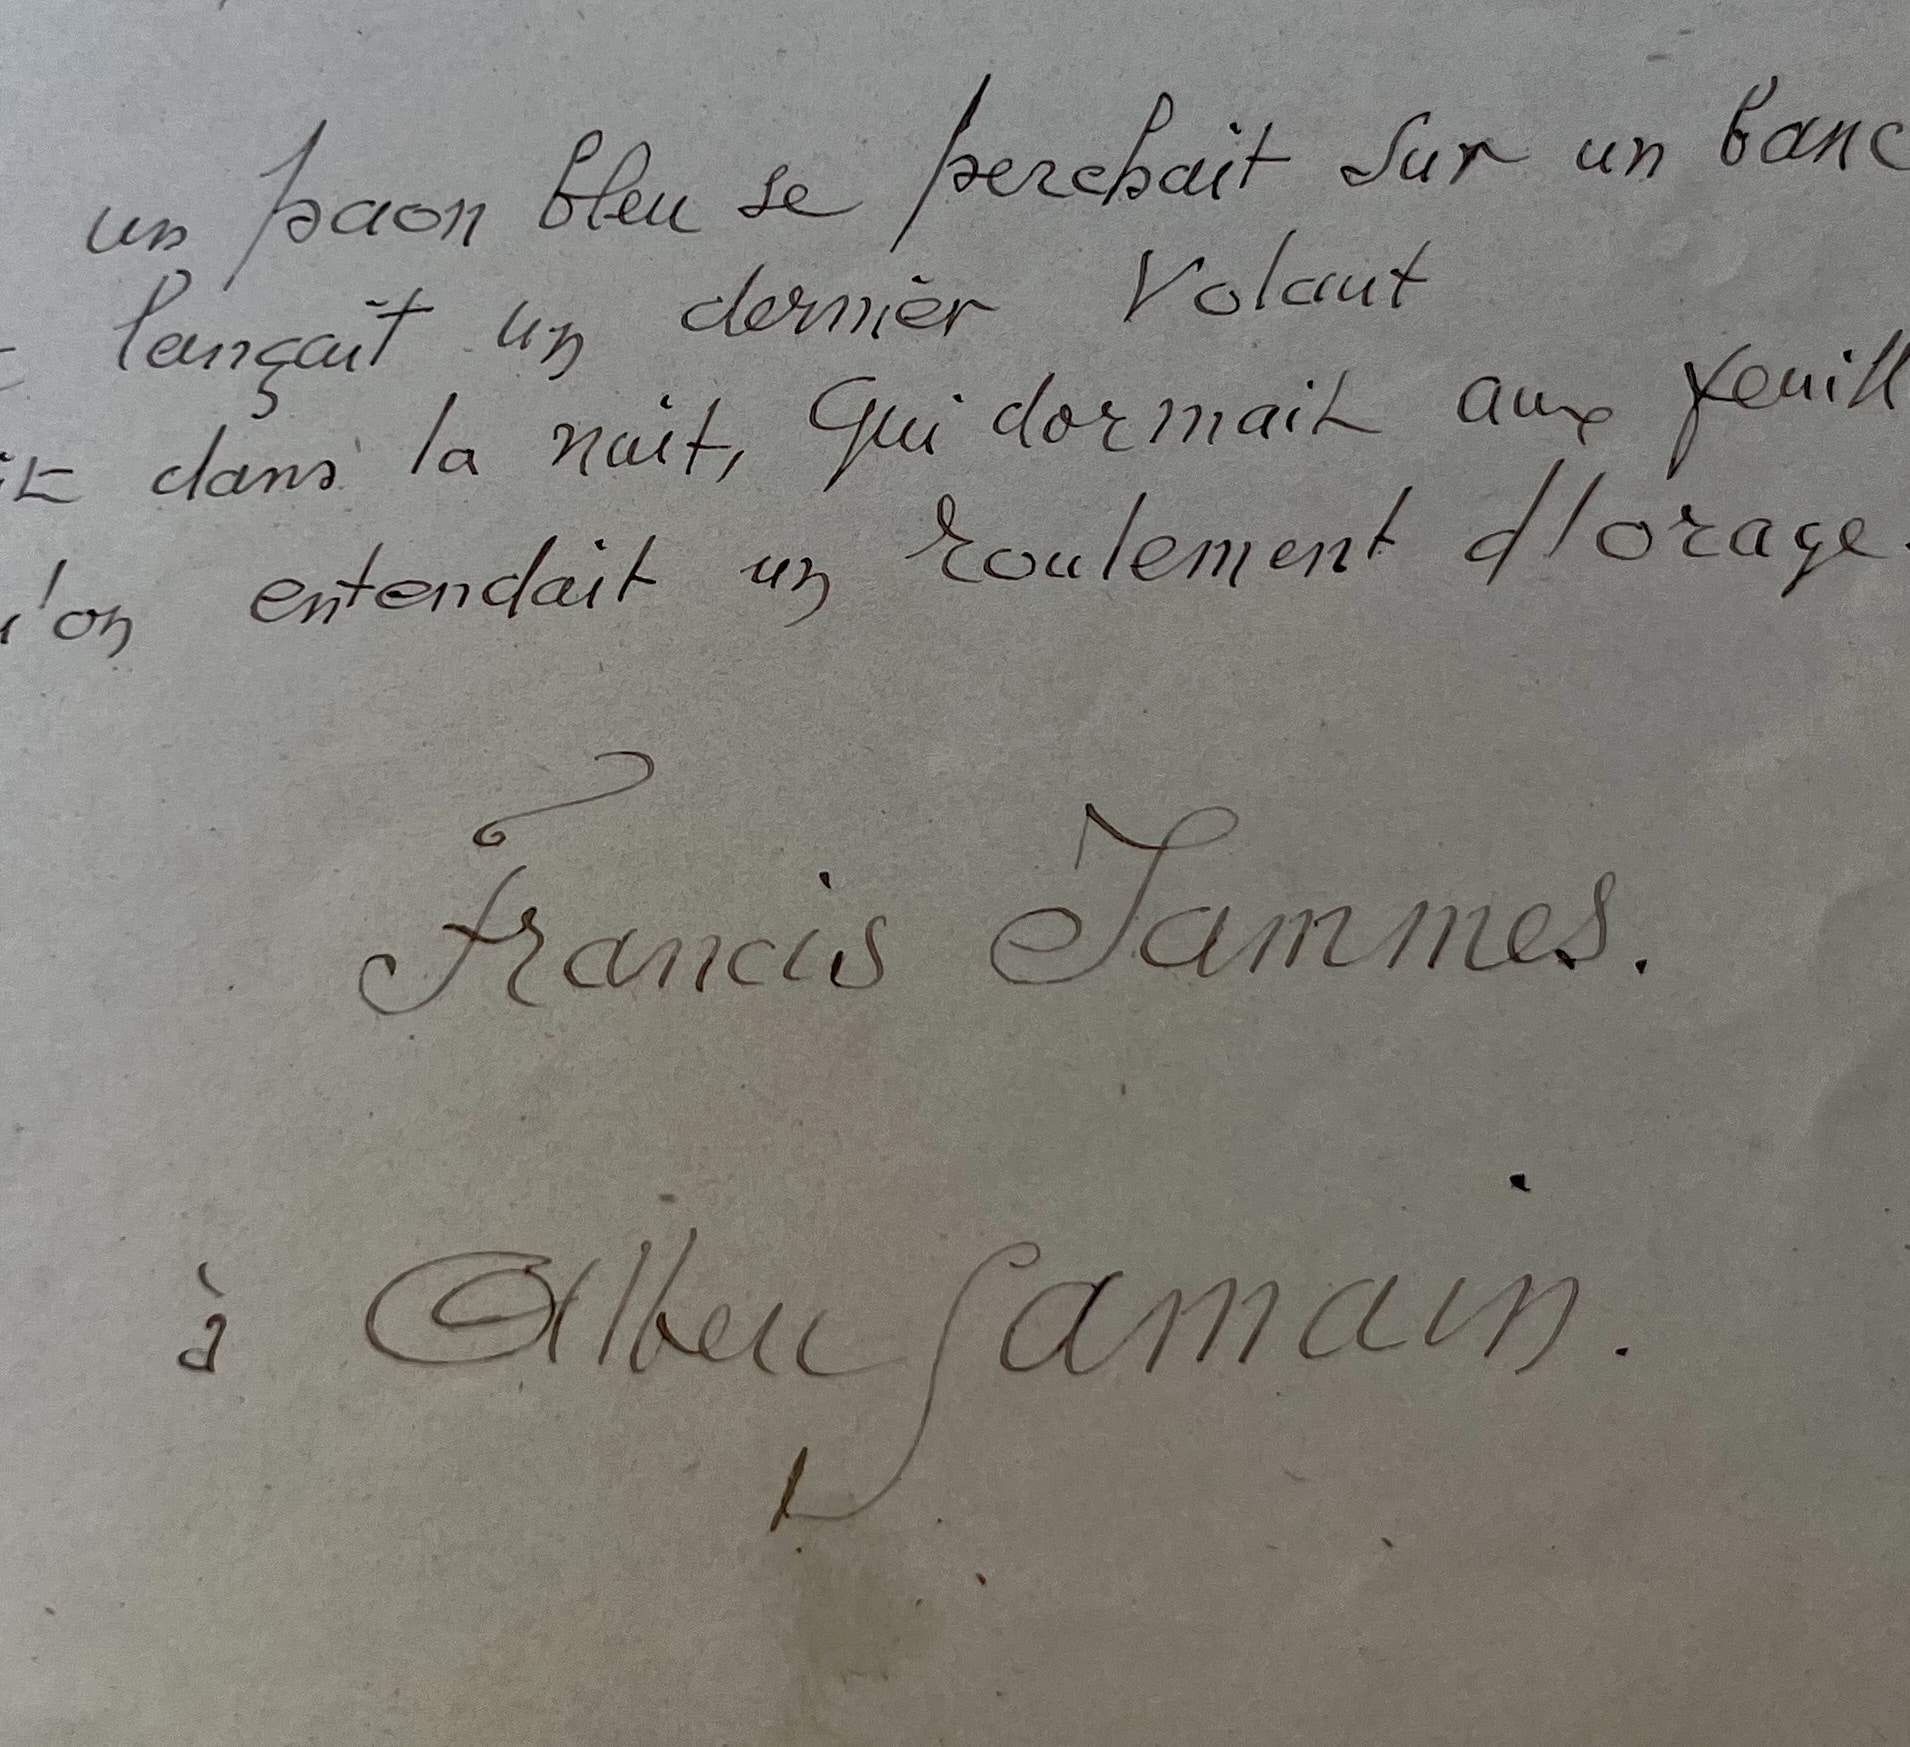 un paon bleu se perchait sur un banc
lançait un dernier volant
dans la nuit, qui dormait aux feuill
'on entendait un roulement d'orage.
Francis Jammes.
à Albert Samain.